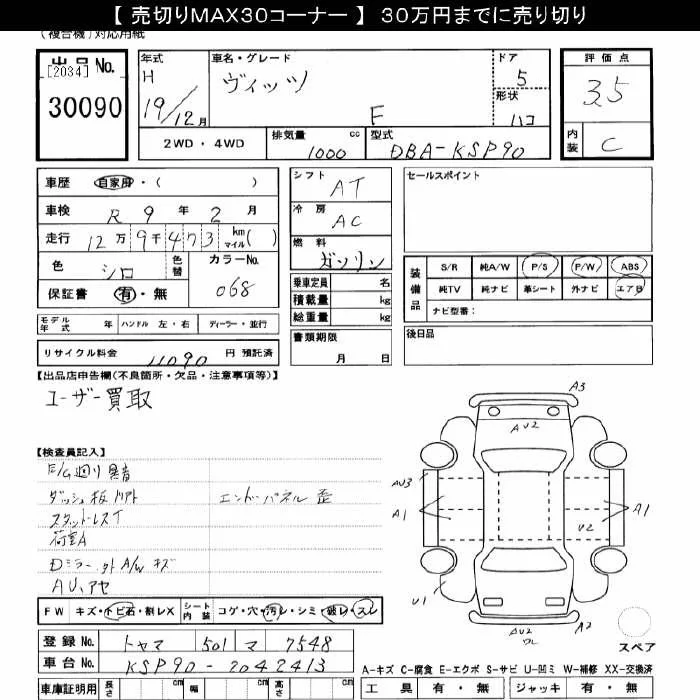 【 売切りMAX30コーナー 】 30万円までに売り切り
(複合機)対応用紙
出品No. [2034] 30090
年式 H 19/12月
車名・グレード ヴィッツ F
ドア 5
形状 ハコ
評価点 3.5
内装 C
2WD・4WD
排気量 1000 cc
型式 DBA-KSP90
車歴 自家用・( )
車検 R 9 年 2 月
走行 12万9千473 km マイル( )
色 シロ 色替
カラーNo. 068
保証書 有・無
シフト AT
冷房 AC
燃料 ガソリン
乗車定員 名
積載量 kg
総重量 kg
書類期限 月 日
セールスポイント
装備品
S/R 純A/W P/S P/W ABS
純TV 純ナビ 革シート 外ナビ エアB
ナビ型番:
モデル年式 年 ハンドル 左・右 ディーラー・並行
後日品
リサイクル料金 11090 円 預託済
【出品店申告欄(不良箇所・欠品・注意事項等)】
ユーザー買取
【検査員記入】
E/G廻り異音
ダッシュ板
エンドパネル歪
スタットレスT
荷室A
Dミラー 外A/Wキズ
AU、アセ
FW キズ・トビ石・割レX
シート内装 コゲ・穴・汚レ・シミ・破レ・スレ
A3
AU2
AU3
A1
A1
U2
U1
A2
AU2
スペア
登録No. トヤマ 501 マ 7548
車台No. KSP90-2042413
A-キズ C-腐食 E-エクボ S-サビ U-凹ミ W-補修 XX-交換済
車庫証明用 長さ cm 幅 cm 高さ cm
工具 有・無 ジャッキ 有・無